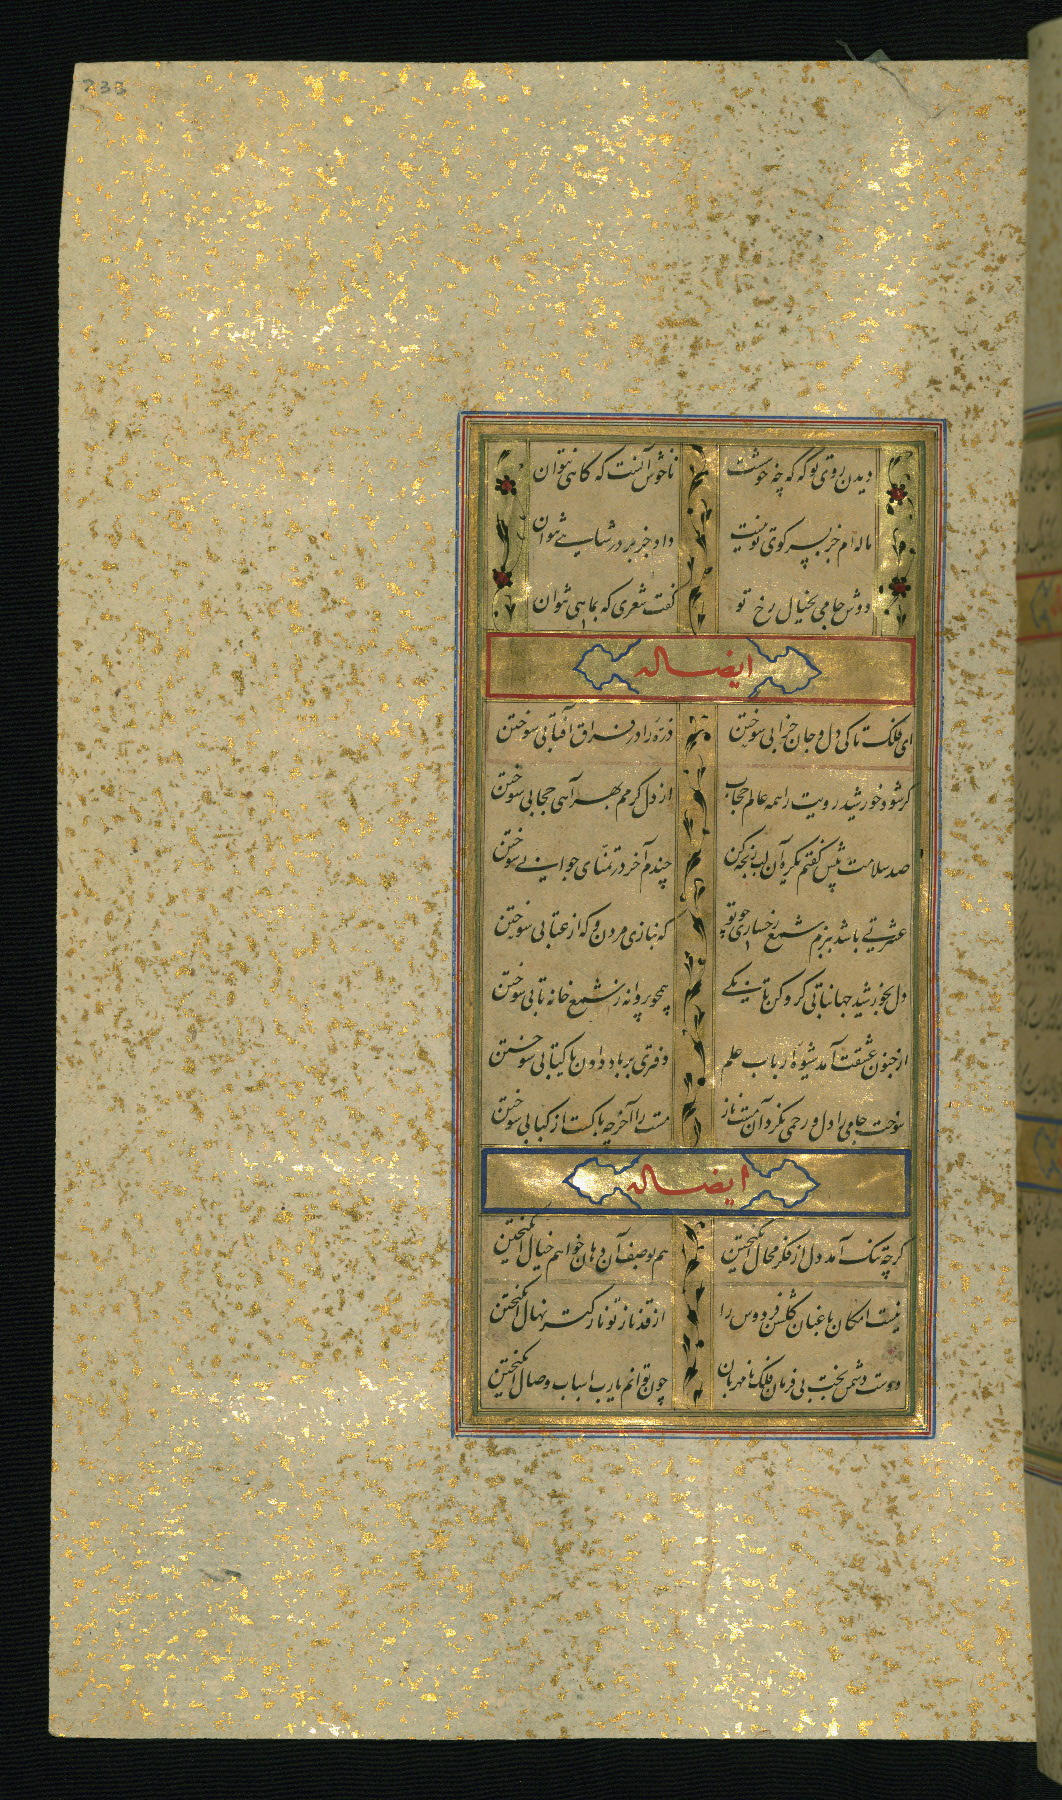 233
دیدن روی تو گه گه چه خوشست ناخوش آنست که گاهی نتوان
ناله‌ام جز بسر کوی تو نیست داد جز بر در شاهی نتوان
دوش جامی بخیال رخ تو گفت شعری که بماهی نتوان
ایضا له
ای فلک تا کی دل و جان خرابی سوختن ذره را در فراق آفتابی سوختن
گر شود خورشید رویت را همه عالم حجاب از دل گرمم بهر آهی حجابی سوختن
صد سلامت پیش گفتم آن لب رنجه کن چندم آخر در تمنای جوابی سوختن
عشرتی باشد ببزم شمع رخساری چو تو که بنازی مردن و که از عتابی سوختن
دل بخورشید جهانتابی گرو کن تا یکی همچو پروانه ز شمع خانه تابی سوختن
از جنون عشقت آمد شیوه ارباب علم دفتری بر باد دادن با کتابی سوختن
سوخت جامی را دل و رحمی نکرد آن مست ناز مست را آخر چه باکست از کبابی سوختن
ایضا له
گرچه تنگ آمد دل از فکر محال انگیختن هم بوصف آن دهان خواهم خیال انگیختن
نیست امکان باغبان گلشن فردوس را از قد ناز تو نازکتر نهال انگیختن
دوست دشمن بخت بی فرمان فلک نامهربان چون توانم یارب اسباب وصال انگیختن